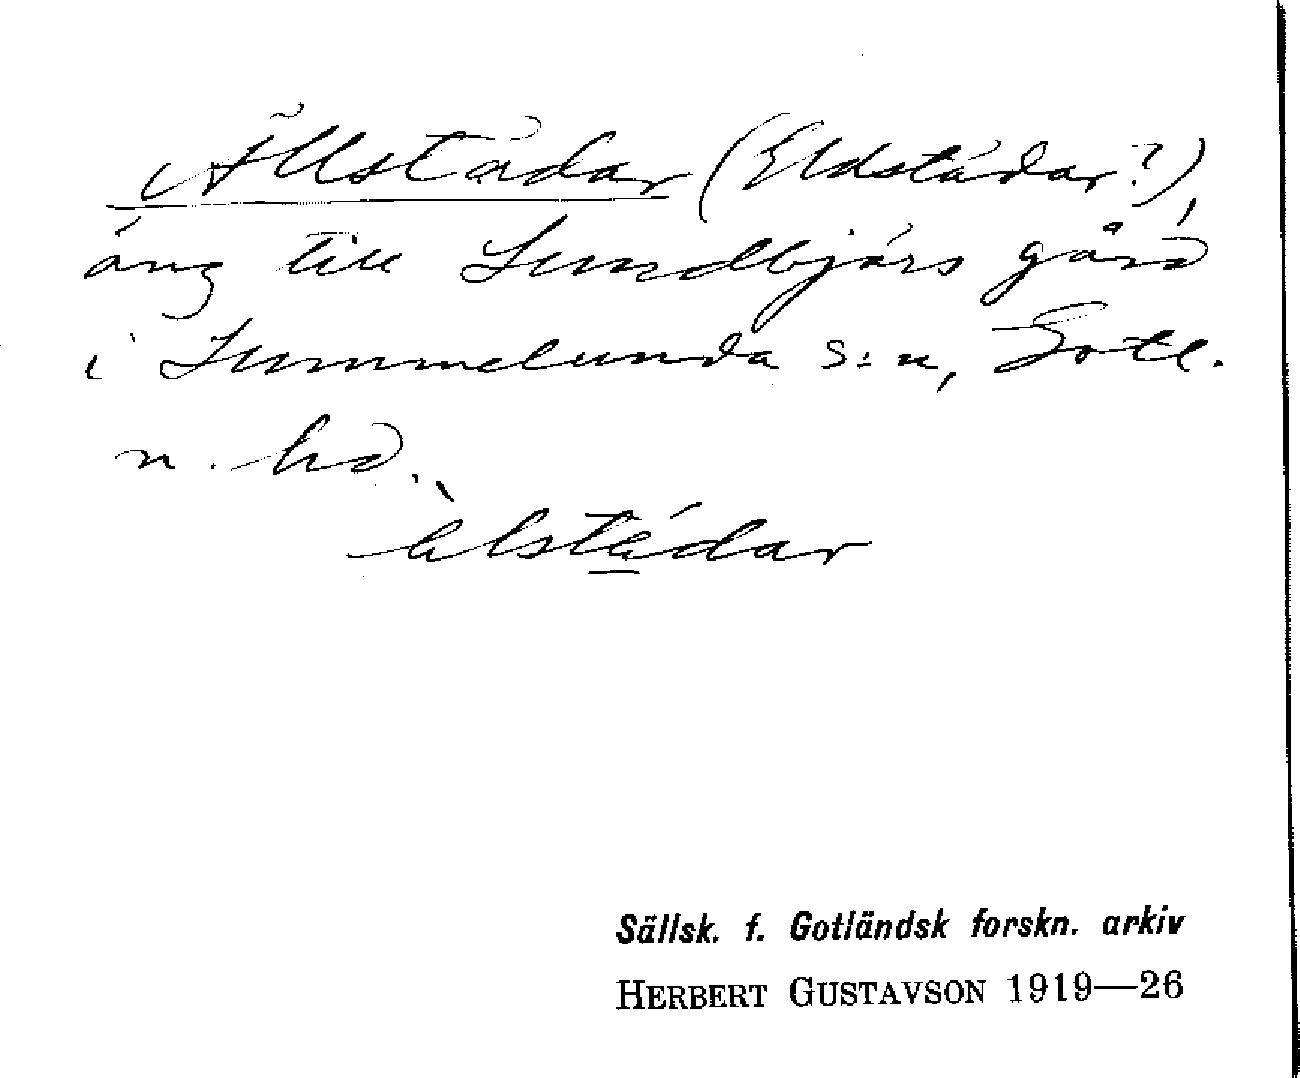 Ällstädar (Eldstädar?),
äng till Lundbjärs gård
i Lummelunda s:n, Gotl.
n. hd.
älstädar
Sällsk. f. Gotländsk forskn. arkiv
HERBERT GUSTAVSON 1919—26